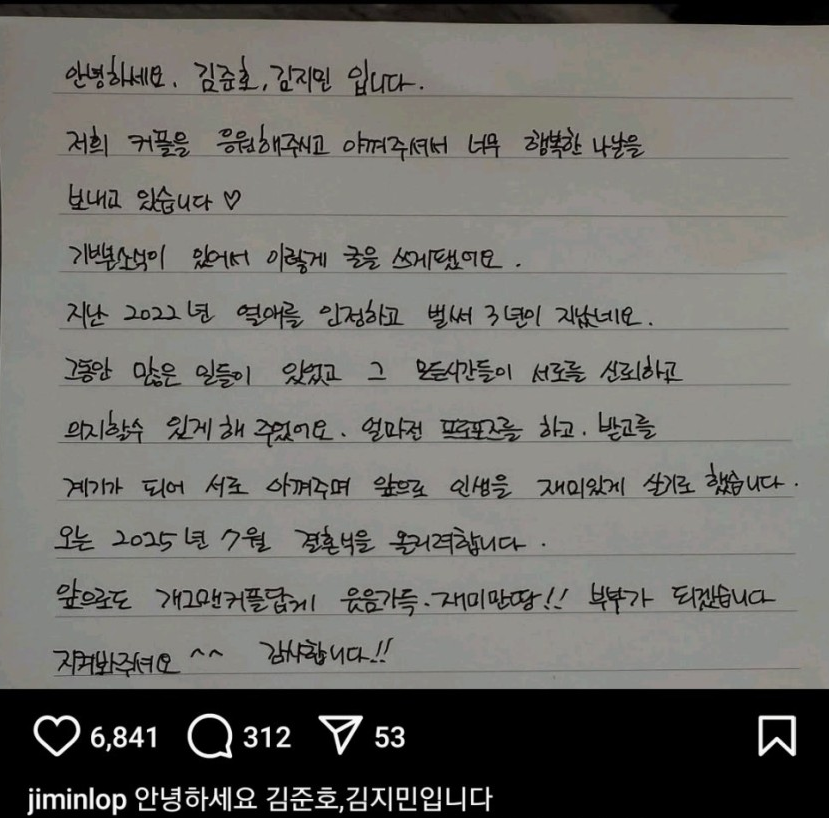 안녕하세요. 김준호,김지민 입니다.
저희 커플을 응원해주시고 아껴주셔서 너무 행복한 나날을
보내고 있습니다 ♡
기쁜소식이 있어서 이렇게 글을 쓰게됐어요.
지난 2022년 열애를 인정하고 벌써 3년이 지났네요.
그동안 많은 일들이 있었고 그 모든시간들이 서로를 신뢰하고
의지할수 있게 해 주었어요. 얼마전 프로포즈를 하고. 받고를
계기가 되어 서로 아껴주며 앞으로 인생을 재미있게 살기로 했습니다.
오는 2025년 7월 결혼식을 올리려합니다.
앞으로도 개그맨커플답게 웃음가득.재미만땅!! 부부가 되겠습니다
지켜봐주셔요 ^^ 감사합니다!!
6,841 312 53
jiminlop 안녕하세요 김준호,김지민입니다